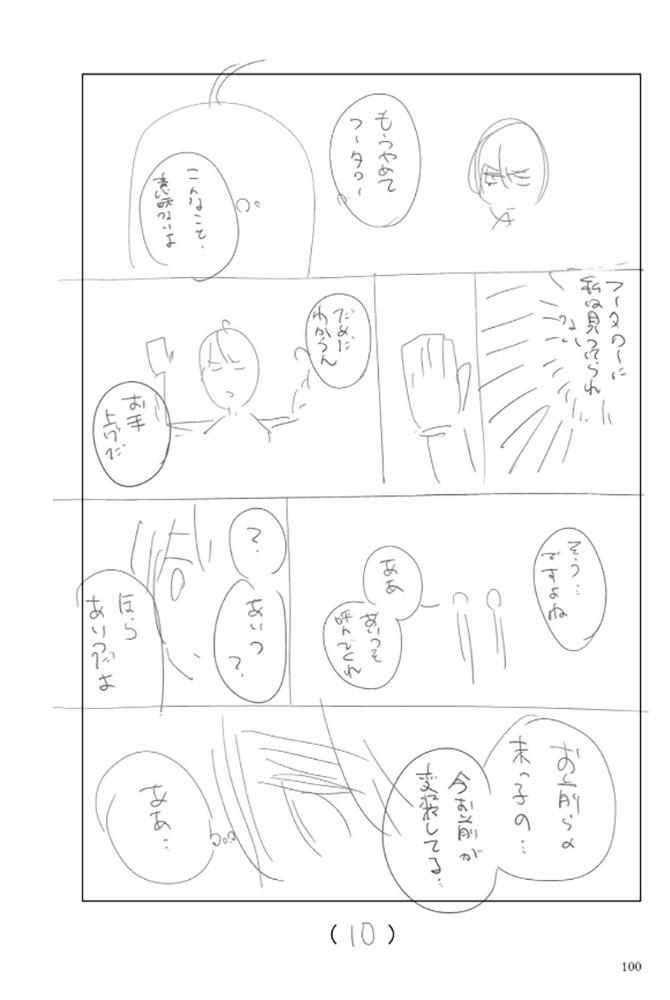 もうやめて
フータロー
こんなこと、
意味ないよ
フータローに
私は見つけられ
ない
だめだ
わからん
お手
上げだ
そう…
ですよね
ああ
あいつを
呼んでくれ
？
あいつ
？
ほら
あいつだよ
お前らの
末っ子の…
今お前が
変装してる…
ああ…
(10)
100